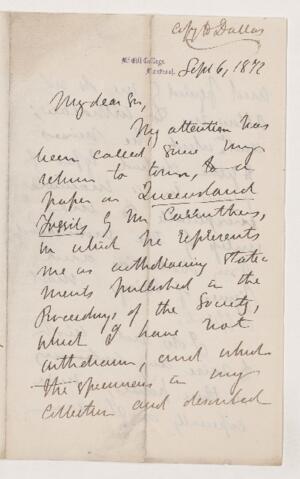 Copy to Dallas
McGill College,
Montreal.
Sept 6, 1872
My dear Sir,
My attention has
been called, since my
return to town, to a
paper on Queensland
Fossils by Mr Carruthers,
in which he represents
me as withdrawing state-
ments published in the
Proceedings of the Society,
which I have not
withdrawn, and which
the specimens in my
collection and described